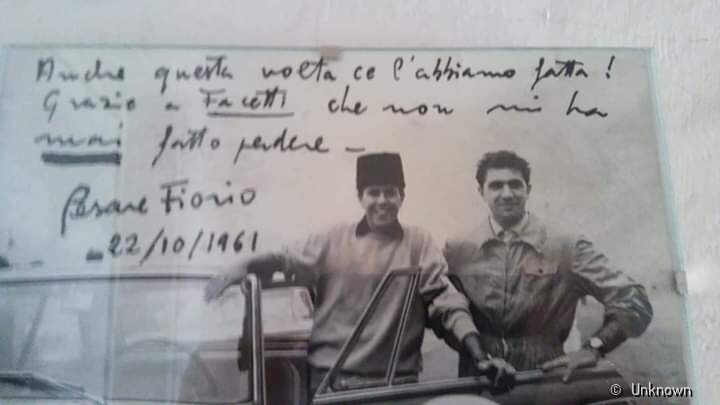 Anche questa volta ce l'abbiamo fatta!
Grazie a Facetti che non mi ha
mai fatto perdere –
Cesare Fiorio
22/10/1961
© Unknown